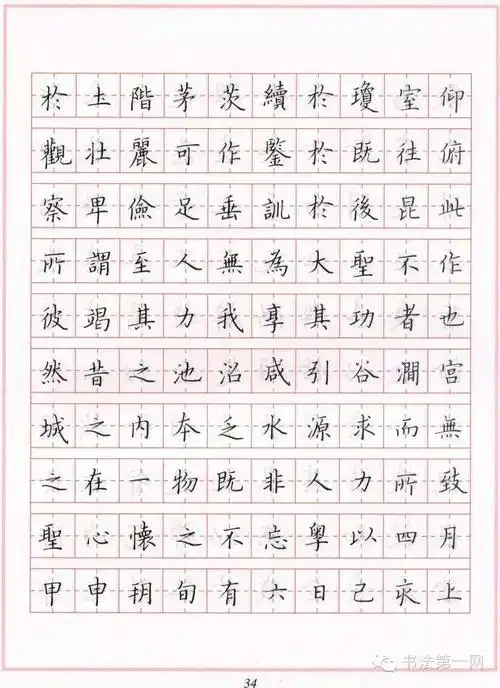 於土階茅茨續於瓊室仰
觀壯麗可作鑒於既往俯
察卑儉足垂訓於後昆此
所謂至人無為大聖不作
彼竭其力我享其功者也
然昔之池沼咸引谷澗宮
城之內本乏水源求而無
之在一物既非人力所致
聖心懷之不忘粵以四月
甲申朔旬有六日己亥上
34
书法第一网